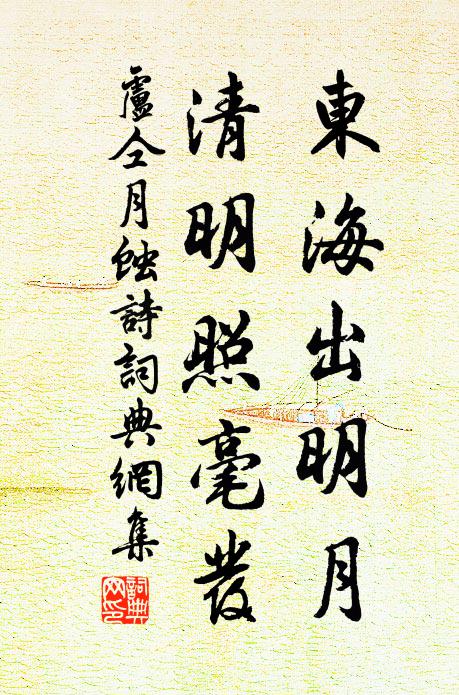 東海出明月
清明照毫發
盧仝月蝕詩詞典網集
詞典网印